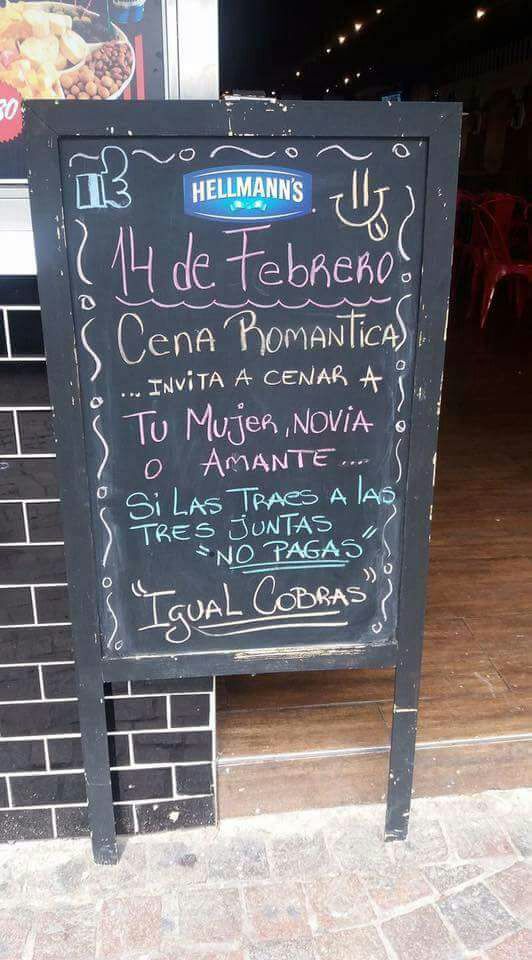 HELLMANN'S
14 de Febrero
Cena Romantica
... INVITA A CENAR A
Tu Mujer, NOVIA
O AMANTE...
Si LAS TRAES A lAS
TRES JUNTAS
"NO PAGAS"
"IguaL CoBRAS"